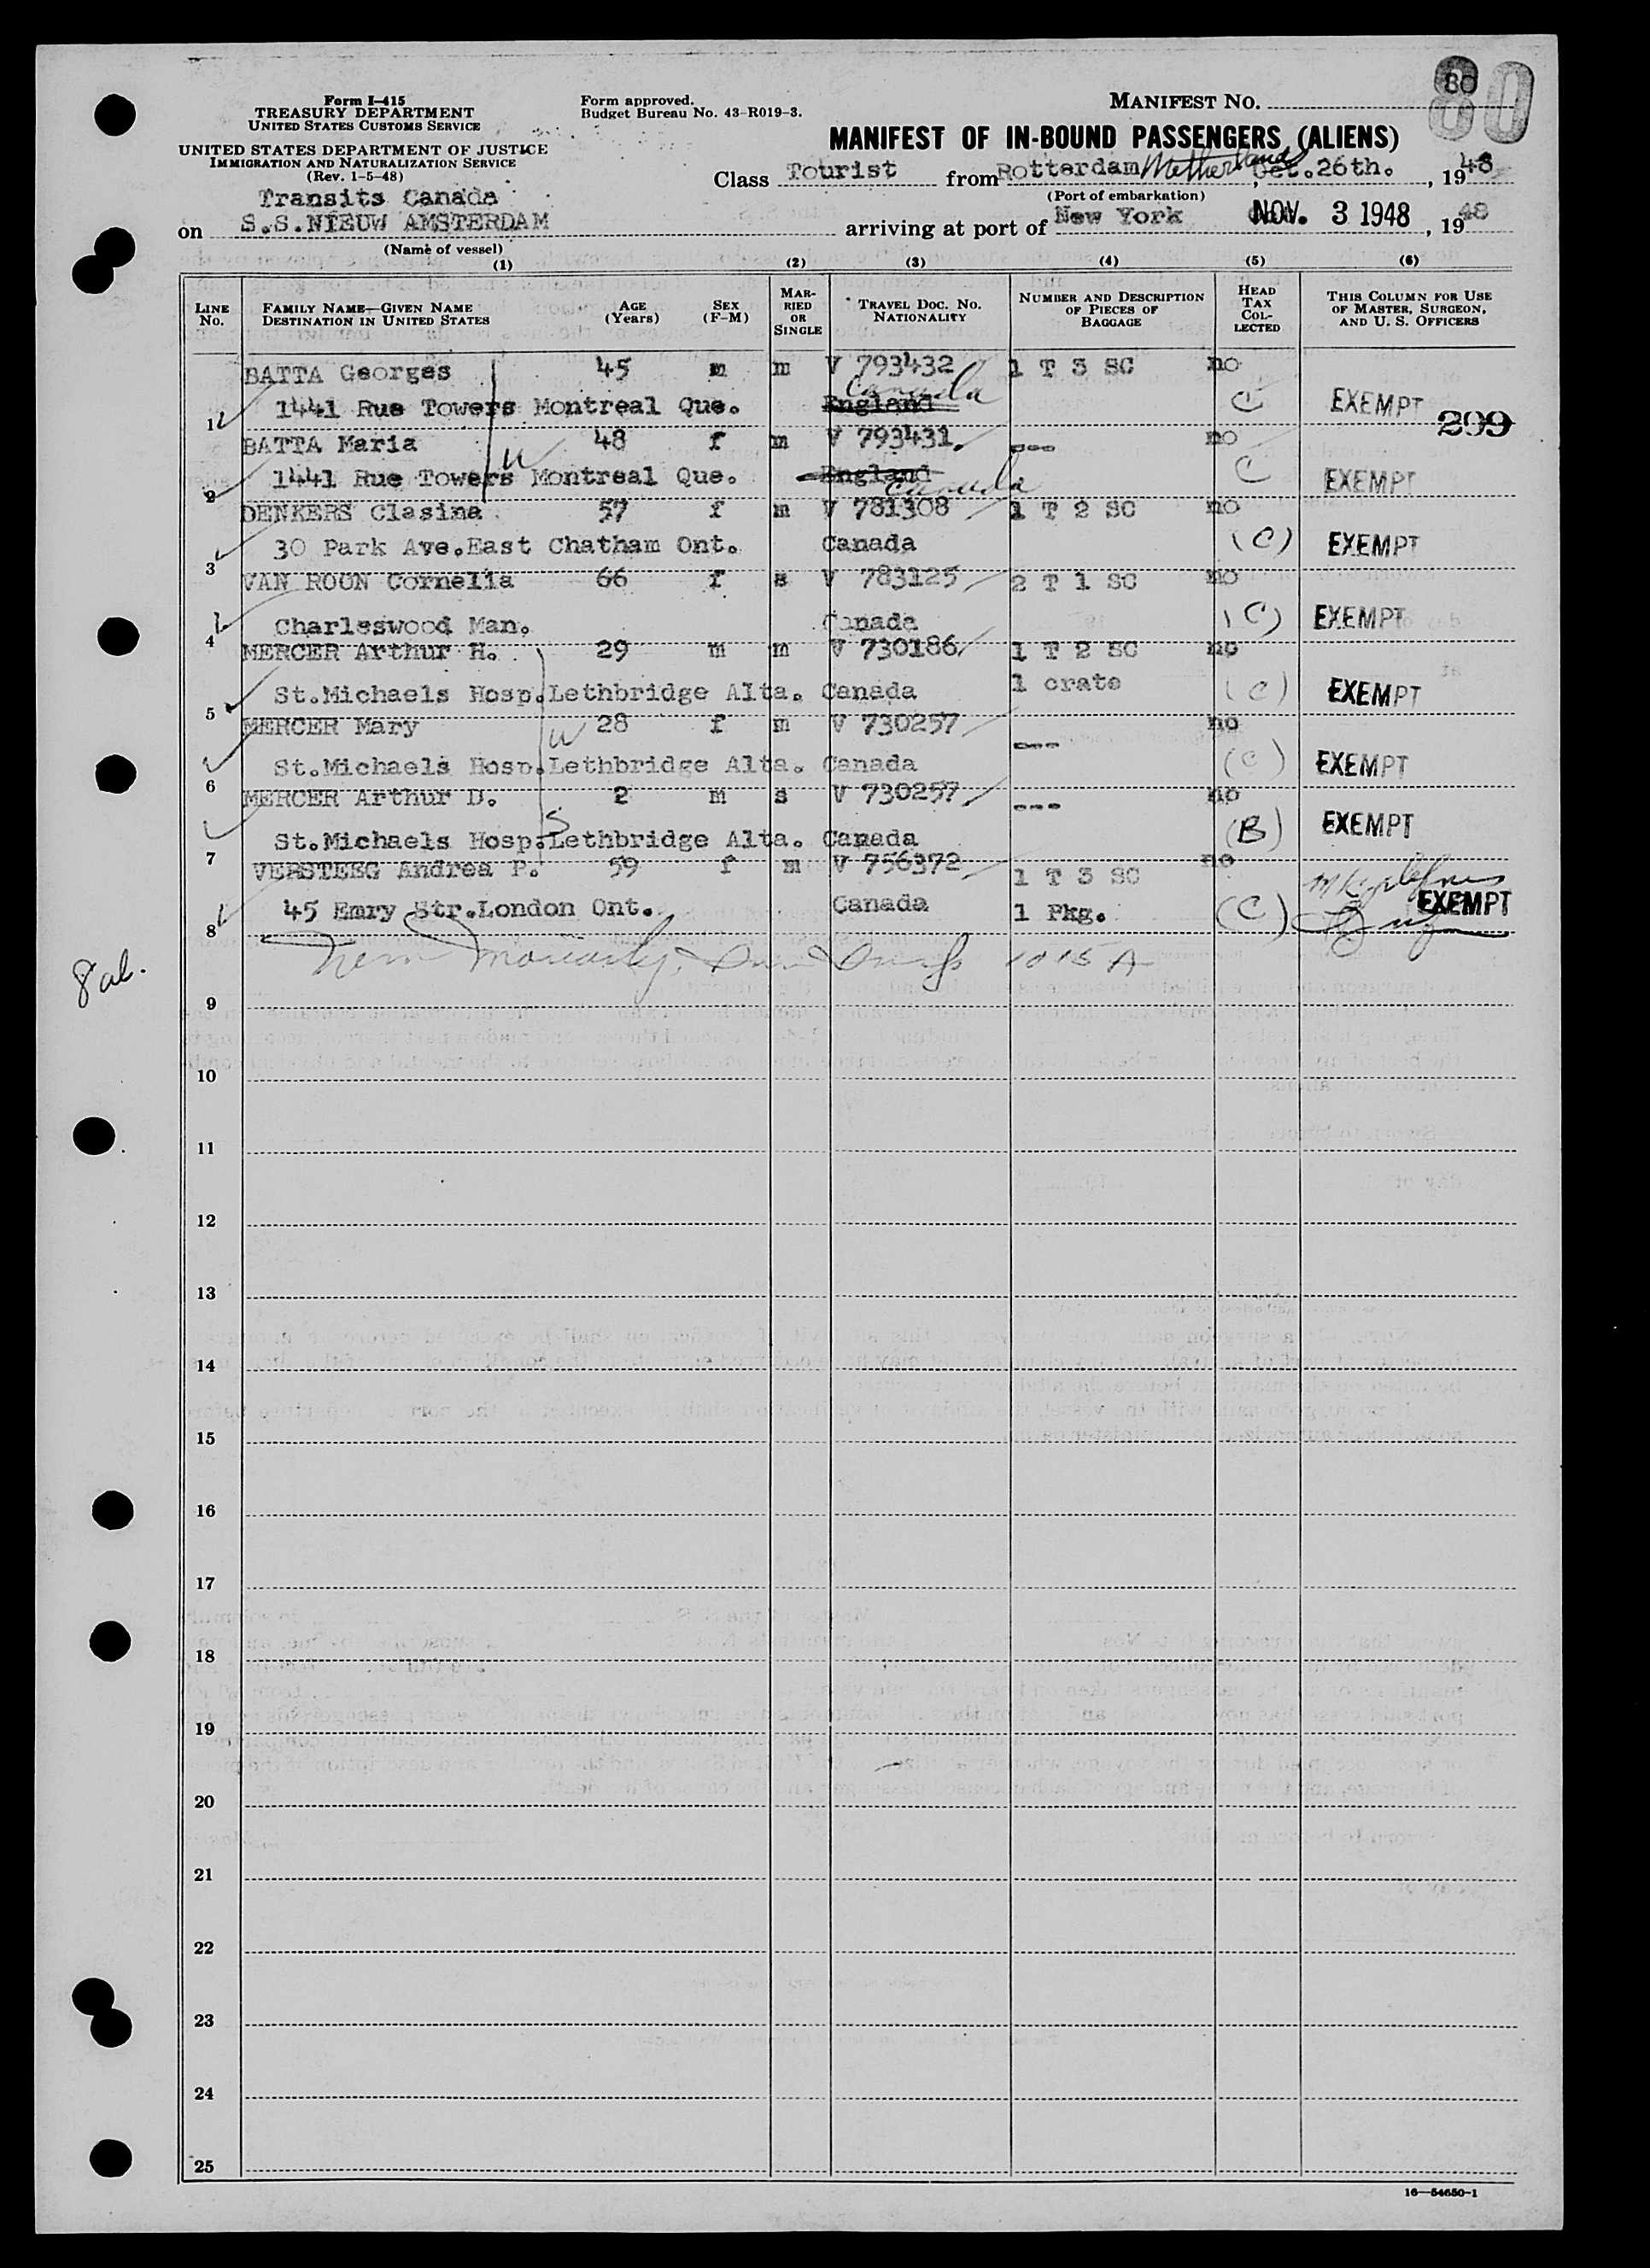 80
80
Form I-415
TREASURY DEPARTMENT
UNITED STATES CUSTOMS SERVICE
UNITED STATES DEPARTMENT OF JUSTICE
IMMIGRATION AND NATURALIZATION SERVICE
(Rev. 1-5-48)
Form approved.
Budget Bureau No. 43-R019-3.
MANIFEST NO.
MANIFEST OF IN-BOUND PASSENGERS (ALIENS)
Class Tourist from Rotterdam Netherlands, Oct. 26th., 1948
(Port of embarkation)
Transits Canada
on S.S.NIEUW AMSTERDAM arriving at port of New York NOV. 3 1948, 1948
(Name of vessel)
(1) (2) (3) (4) (5) (6)
LINE No. FAMILY NAME—GIVEN NAME DESTINATION IN UNITED STATES AGE (Years) SEX (F-M) MARRIED OR SINGLE TRAVEL DOC. NO. NATIONALITY NUMBER AND DESCRIPTION OF PIECES OF BAGGAGE HEAD TAX COLLECTED THIS COLUMN FOR USE OF MASTER, SURGEON, AND U. S. OFFICERS
BATTA Georges 45 m m V 793432 1 T 3 SC no
1 1441 Rue Towers Montreal Que. England Canada C EXEMPT 299
BATTA Maria W 48 f m V 793431. --- no
2 1441 Rue Towers Montreal Que. England Canada C EXEMPT
DENKERS Clasina 57 f m V 781308 1 T 2 SC no
3 30 Park Ave.East Chatham Ont. Canada (C) EXEMPT
VAN ROON Cornelia 66 f s V 783125 2 T 1 SC no
4 Charleswood Man. Canada (C) EXEMPT
MERCER Arthur H. 29 m m V 730186 1 T 2 SC no
5 St.Michaels Hosp.Lethbridge Alta. Canada 1 crate (C) EXEMPT
MERCER Mary W 28 f m V 730257 --- no
6 St.Michaels Hosp.Lethbridge Alta. Canada (C) EXEMPT
MERCER Arthur D. 2 m s V 730257 --- no
7 St.Michaels Hosp.Lethbridge Alta. S Canada (B) EXEMPT
VERSTEEG Andrea P. 59 f m V 756372 1 T 3 SC no
8 45 Emry Str.London Ont. Canada 1 Pkg. (C) EXEMPT
1015 A
8 al.
9
10
11
12
13
14
15
16
17
18
19
20
21
22
23
24
25
16—54650-1